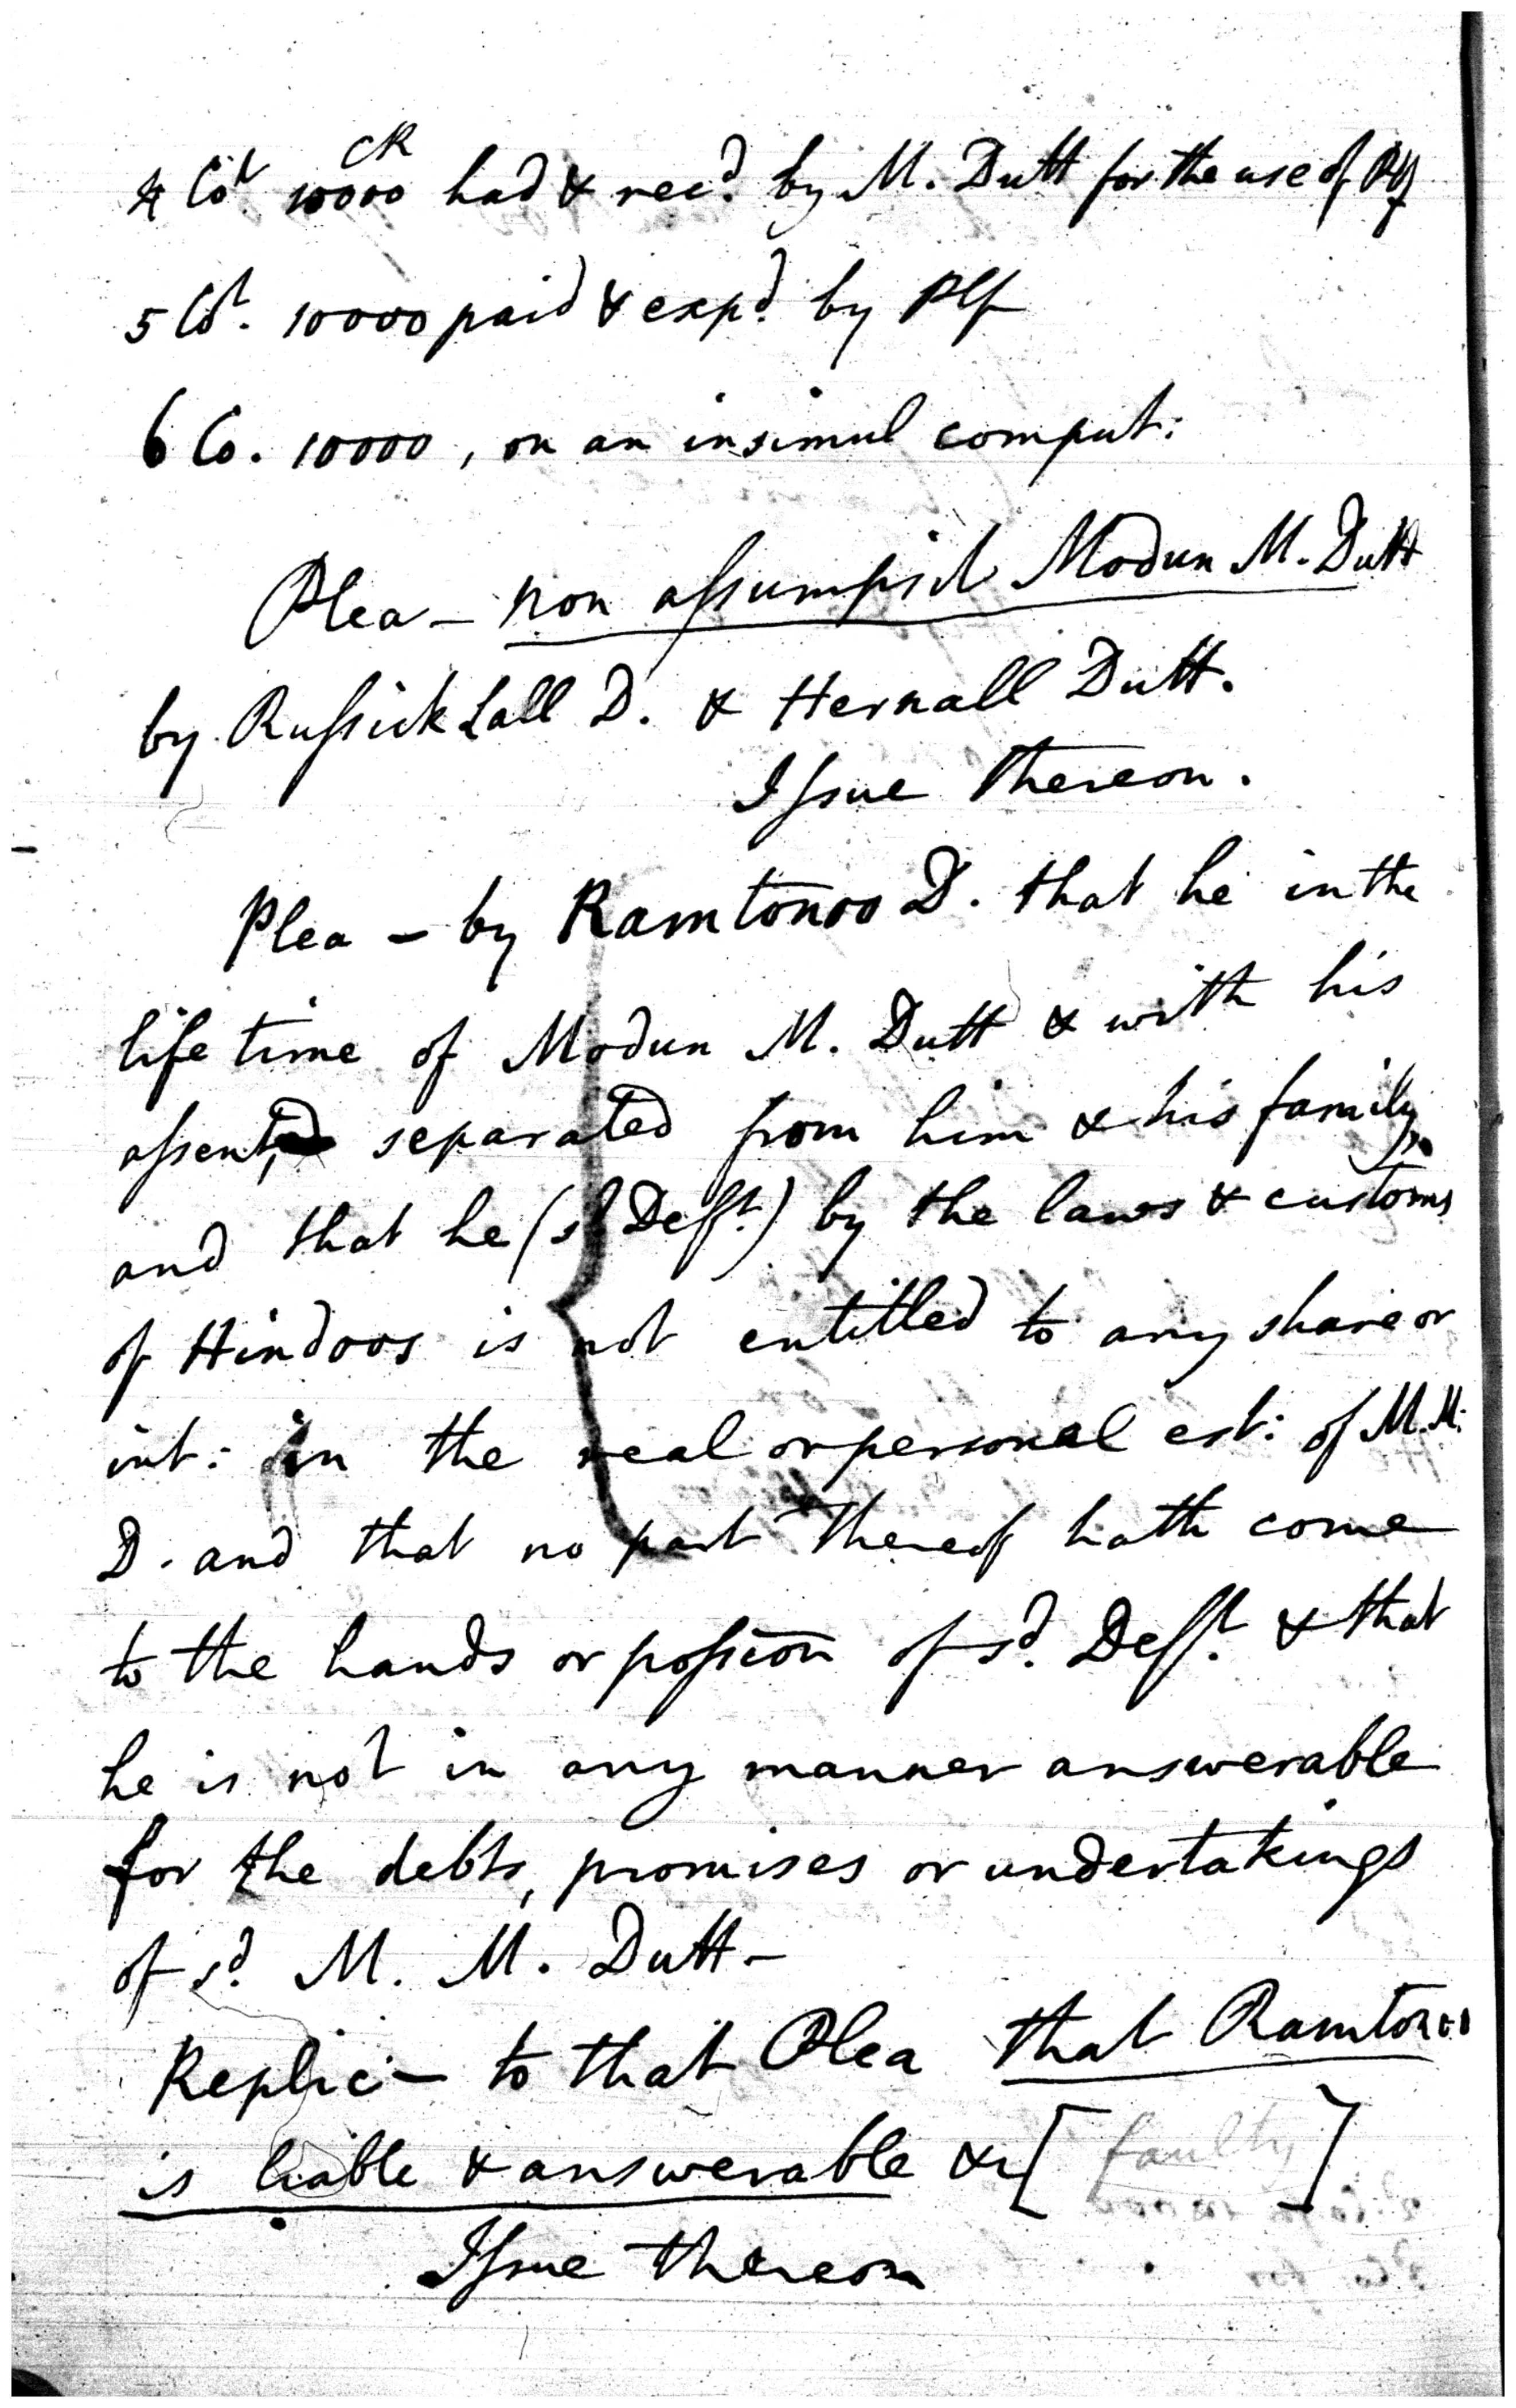 CR
4 Cot. 10000 had & recd. by M. Dutt for the use of Plf
5 Cot. 10000 paid & expd. by Plf
6 Co. 10000, on an insimul comput:
Plea - non assumpsit Modun M. Dutt
by Russick Lall D. & Hernall Dutt.
Issue thereon.
Plea - by Ramtonoo D. that he in the
life time of Modun M. Dutt & with his
assent, separated from him & his family,
and that he (sd Defft.) by the laws & customs
of Hindoos is not entitled to any share or
int: in the real or personal est: of M. M.
D. and that no part thereof hath come
to the hands or possion of sd. Defft. & that
he is not in any manner answerable
for the debts, promises or undertakings
of sd. M. M. Dutt -
Replic: - to that Plea that Ramtonoo
is liable & answerable &c [faulty]
Issue thereon